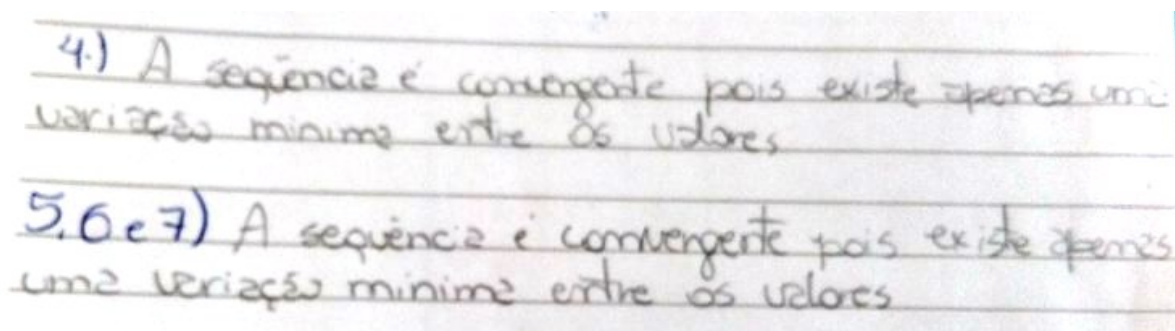 4.) A sequência é convergente pois existe apenas uma
variação minima entre os valores
5.6 e 7) A sequência é convergente pois existe apenas
uma variação minima entre os valores